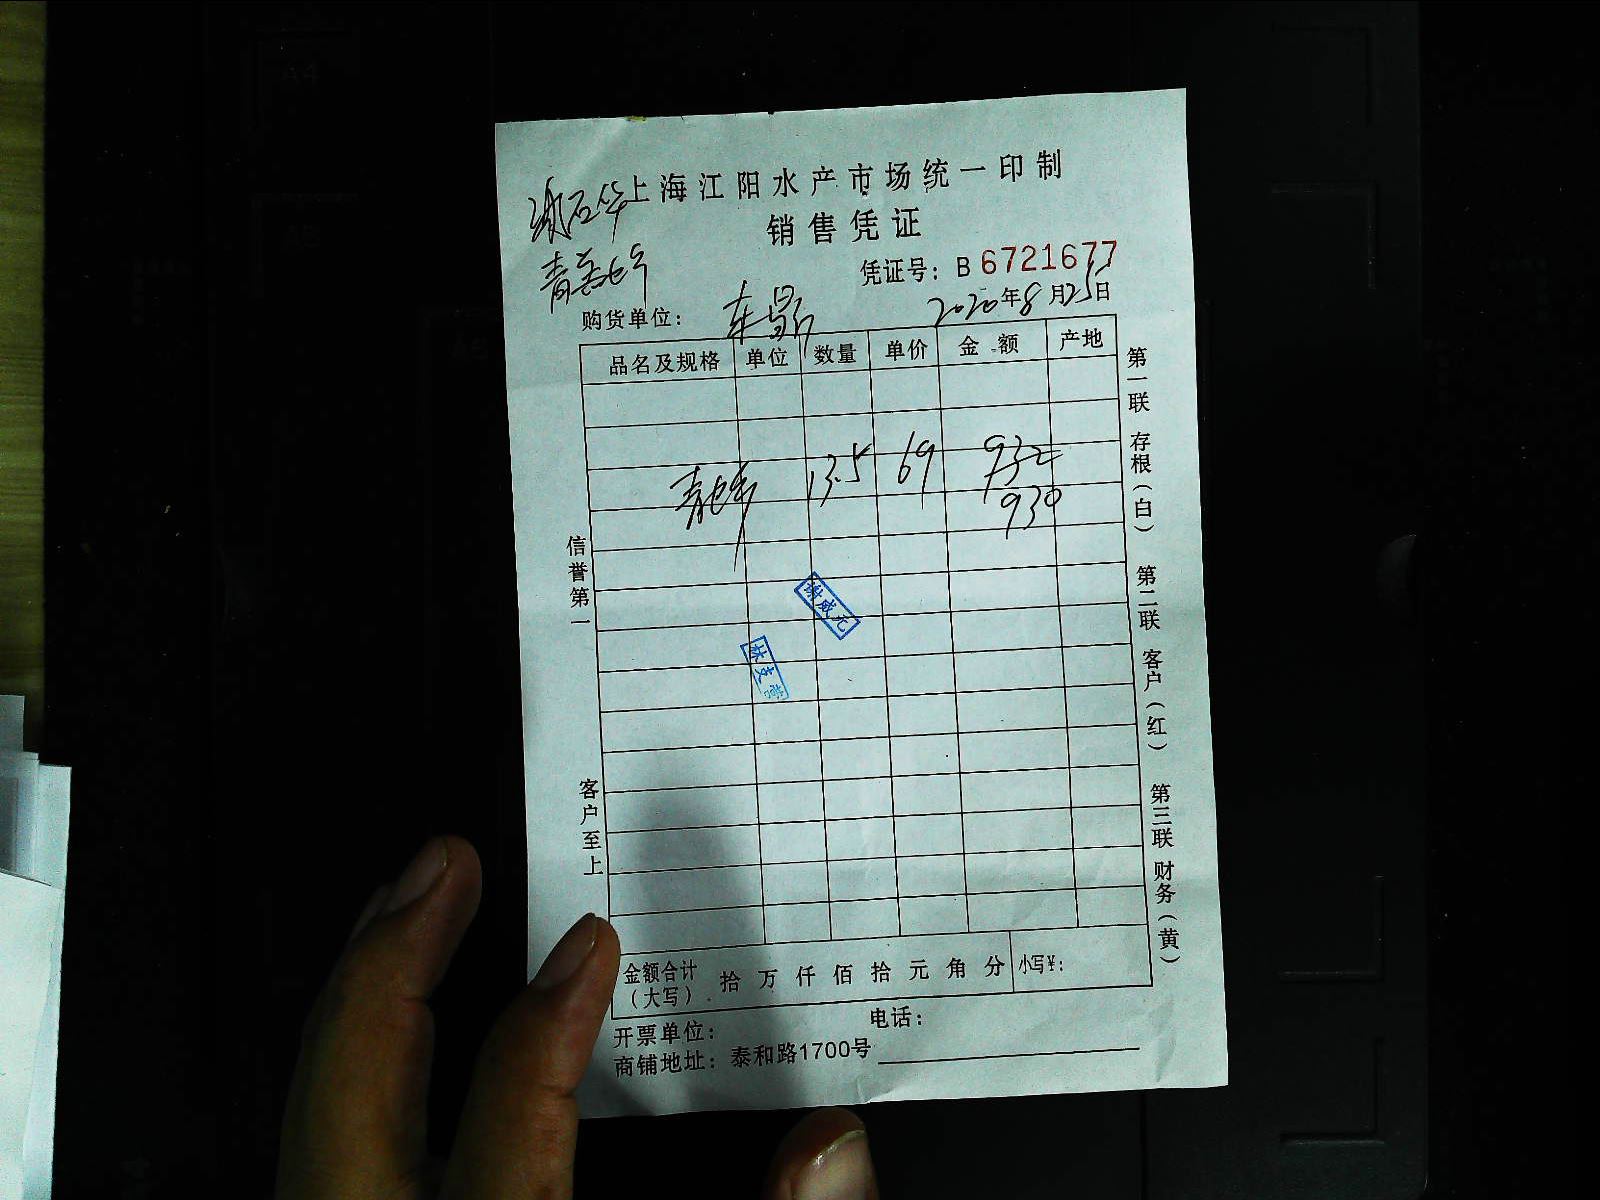 上海江阳水产市场统一印制
销售凭证
凭证号：B 6721677
购货单位：
2020年8月25日
品名及规格 单位 数量 单价 金额 产地
13.5 69 932
930
谢威元
信誉第一
客户至上
第一联 存根（白） 第二联 客户（红） 第三联 财务（黄）
金额合计（大写） 拾 万 仟 佰 拾 元 角 分 小写¥：
开票单位： 电话：
商铺地址：泰和路1700号